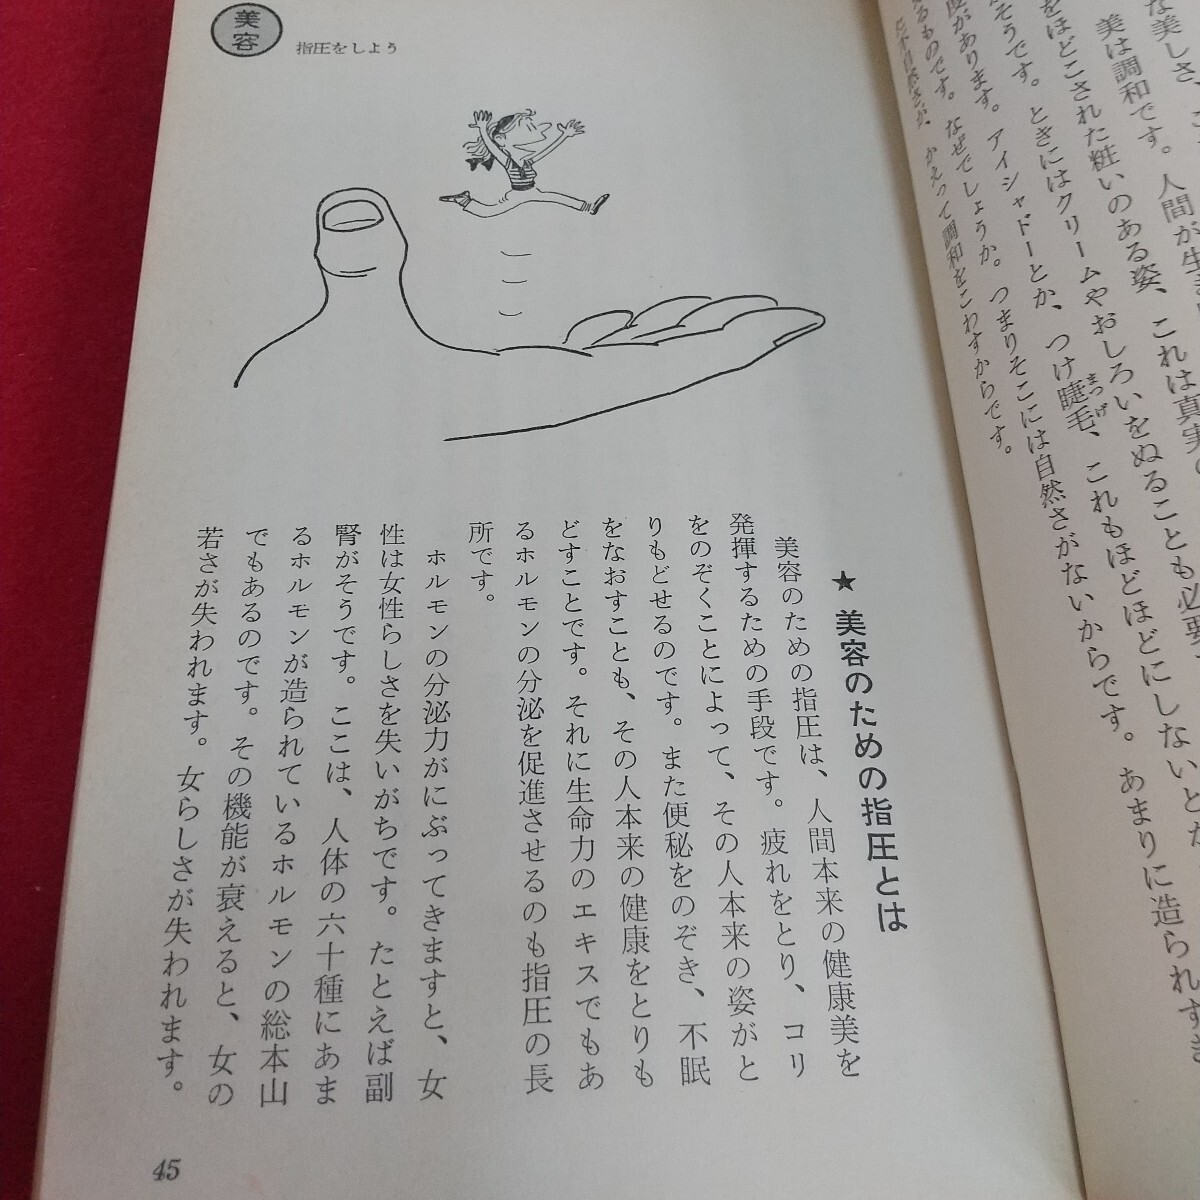 な美しさ、こ
美は調和です。人間が生き
をほどこされた粧いのある姿、これは真実の
なそうです。ときにはクリームやおしろいをぬることも必要、
度があります。アイシャドーとか、つけ睫毛、これもほどほどにしないとか
まつげ
るものです。なぜでしょうか。つまりそこには自然さがないからです。あまりに造られすぎ
た不自然さが、かえって調和をこわすからです。
美容
指圧をしよう
★ 美容のための指圧とは
美容のための指圧は、人間本来の健康美を
発揮するための手段です。疲れをとり、コリ
をのぞくことによって、その人本来の姿がと
りもどせるのです。また便秘をのぞき、不眠
をなおすことも、その人本来の健康をとりも
どすことです。それに生命力のエキスでもあ
るホルモンの分泌を促進させるのも指圧の長
所です。
ホルモンの分泌力がにぶってきますと、女
性は女性らしさを失いがちです。たとえば副
腎がそうです。ここは、人体の六十種にあま
るホルモンが造られているホルモンの総本山
でもあるのです。その機能が衰えると、女の
若さが失われます。女らしさが失われます。
45